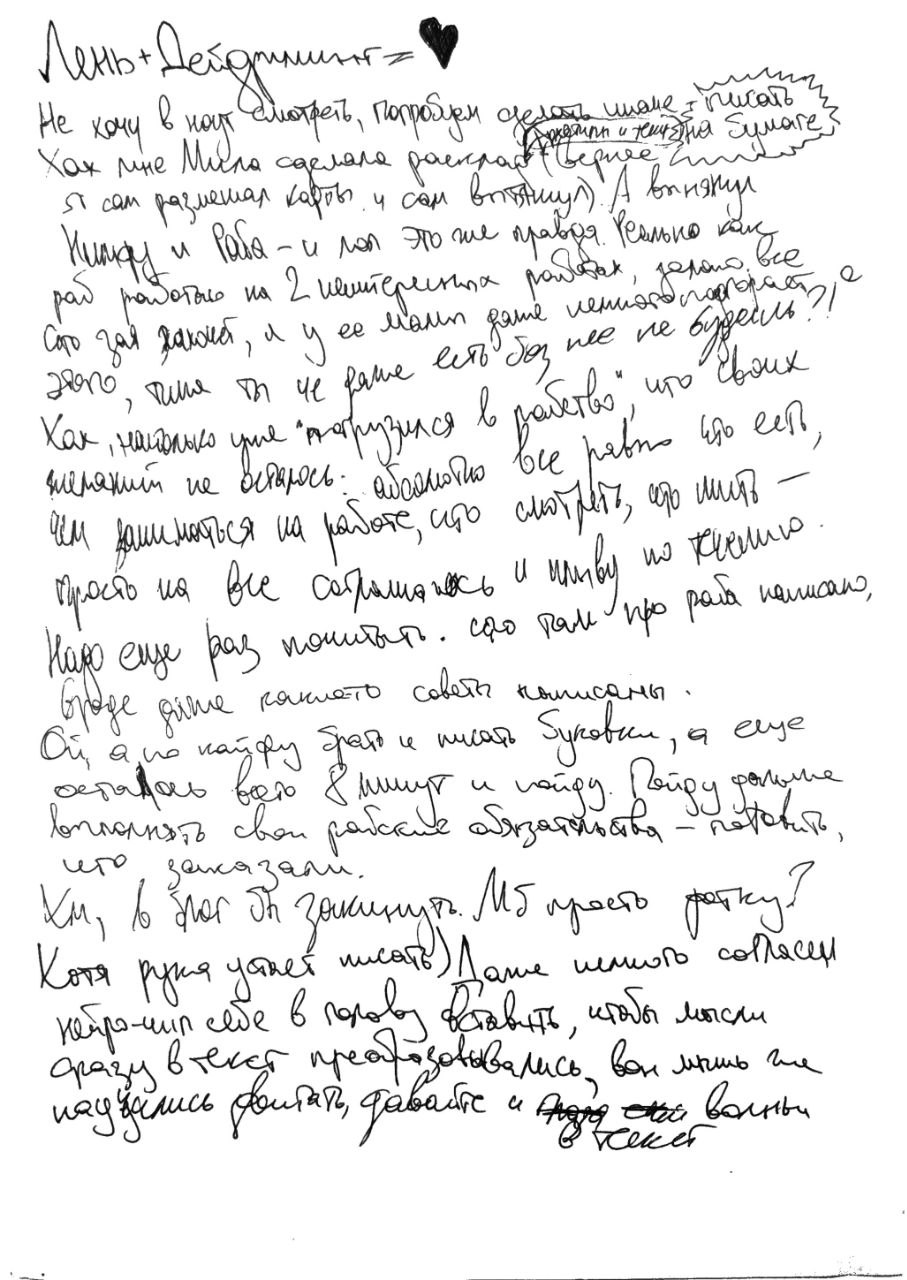 Лень + Дейдриминг = ♥
Не хочу в ноут смотреть, попробуем сделать иначе - писать
на бумаге
Хах мне Мила сделала расклад (вернее
я сам размешал карты и сам вытянул). А вытянул
и Раба – и это же правда. Реально как
раб работаю на 2 неинтересных работах, делаю все
что зая хочет, и у ее мамы даже немного подгорает с
этого, типа ты че даже есть без нее не будешь?!
Хах, настолько уже "погрузился в рабство", что своих
желаний не осталось: абсолютно все равно что есть,
чем заниматься на работе, что смотреть, что пить –
просто на все соглашаюсь и плыву по течению.
Надо еще раз почитать. что там про раба написано,
вроде даже какието советы написаны.
Ой, а по кайфу брать и писать буковки, а еще
осталось всего 8 минут и пойду. Пойду дальше
выполнять свои рабские обязательства – готовить,
что заказали.
Хм, в блог бы закинуть. Мб просто фотку?
Хотя рука устает писать) Даже немного согласен
нейро-чип себе в голову вставить, чтобы мысли
сразу в текст преобразовывались, вон лишь же
научились давайте и волны
в текст